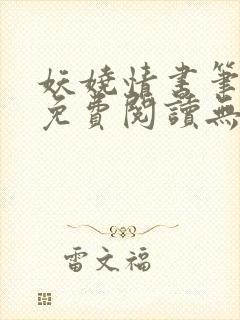 妖嬈情書筆
免費閱讀無
雷文福